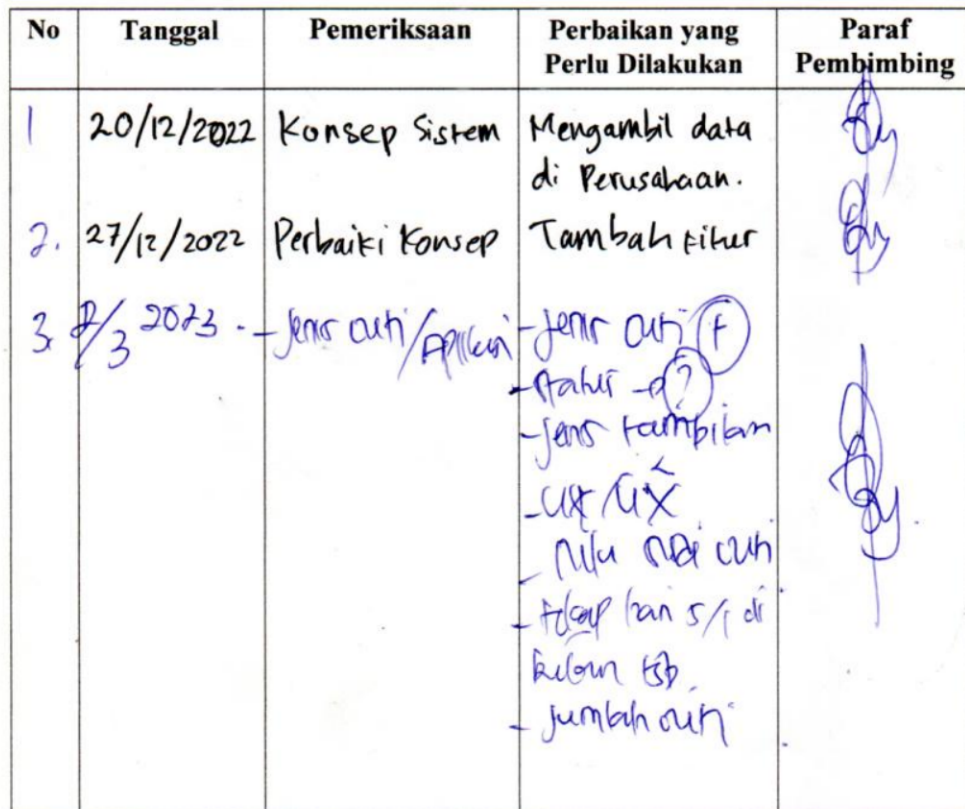 No Tanggal Pemeriksaan Perbaikan yang Perlu Dilakukan Paraf Pembimbing
1 20/12/2022 Konsep Sistem Mengambil data
di Perusahaan.
2. 27/12/2022 Perbaiki Konsep Tambah Fitur
3. /3 2023 - Jenis cuti/Aplikasi - Jenis cuti
- Status → ?
- Jenis tampilan
- UX/UX
- cuti
- di
tsb
- Jumlah cuti